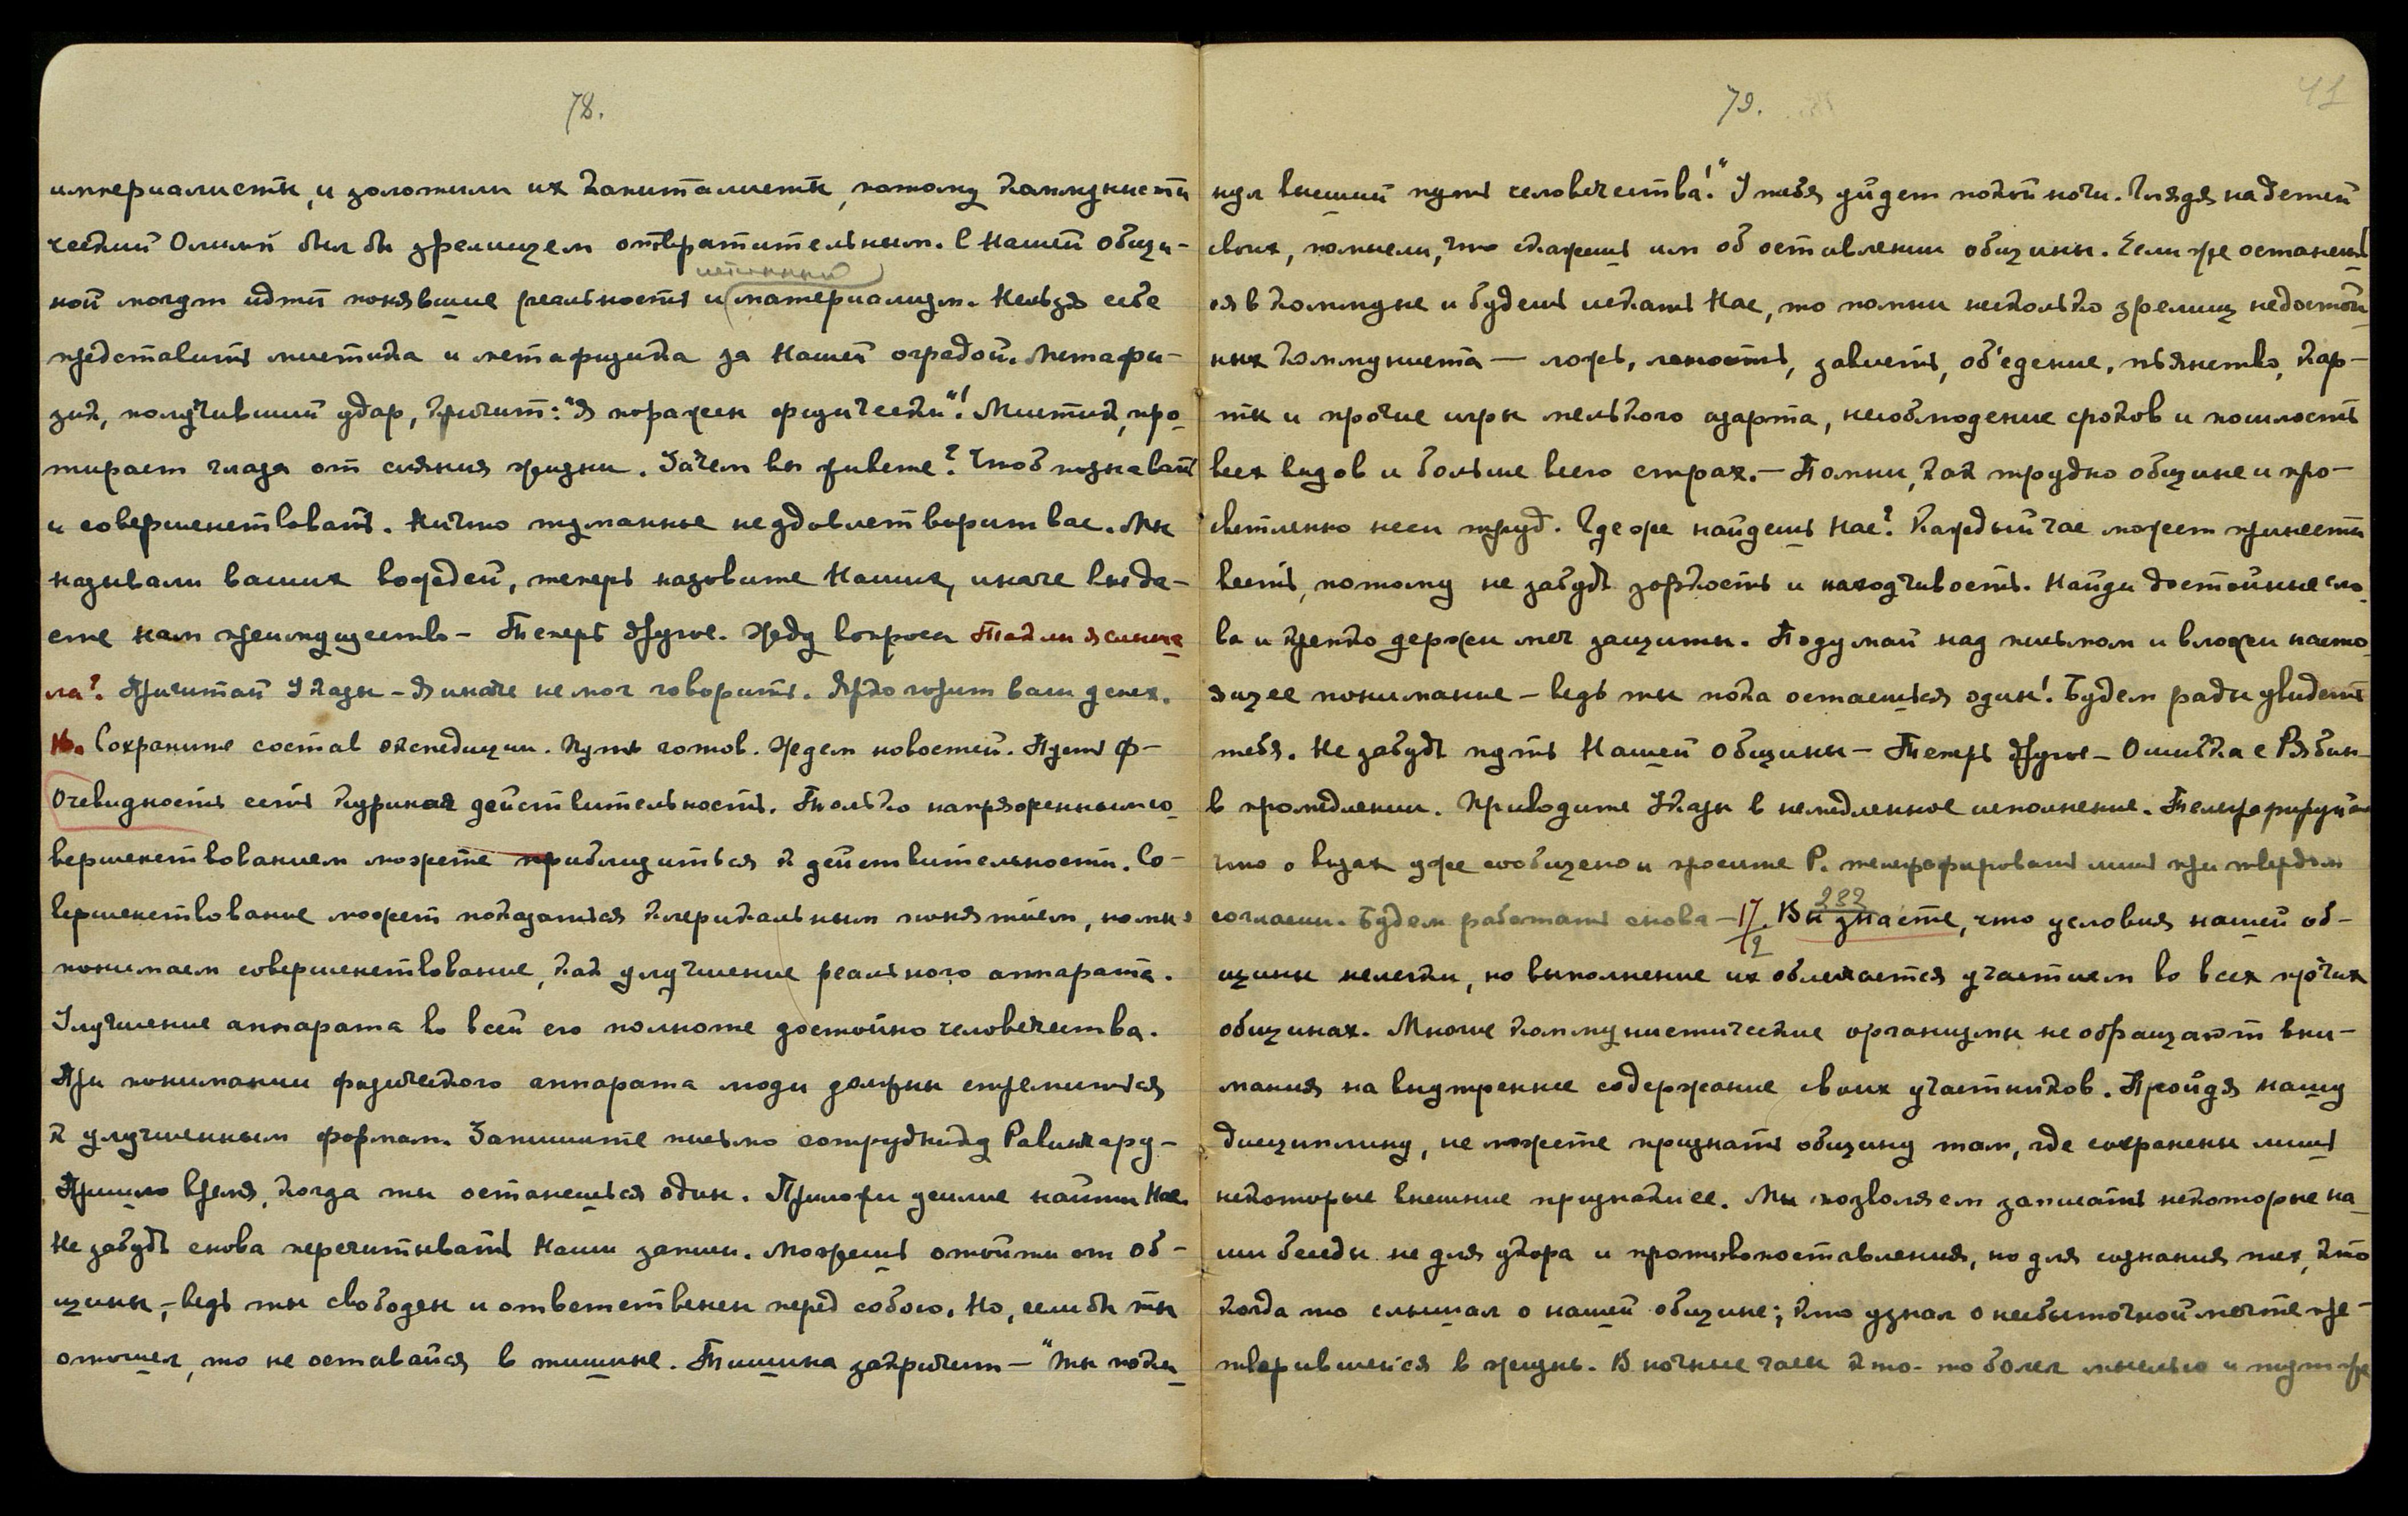 78.
империалисты, и золотили их капиталисты, потому коммунисти
ческий Олимп был бы зрелищем отвратительным. С Нашей Общи-
истинный
ной могут идти понявшие реальность и материализм. Нельзя себе
представить мистика и метафизика за Нашей оградой. Метафи-
зик, получивший удар, кричит: "Я поражен физически"! Мистик, про-
тирает глаза от сияния жизни. Зачем вы живете? Чтоб познавать
и совершенствовать. Ничто туманное не удовлетворит вас. Мы
называли ваших вождей, теперь назовите Наших, иначе вы да-
ете нам преимущество - Теперь другое. Жду вопросы Так ли я слыша
ла? Прочитай Указы - Я иначе не мог говорить. Ярко горит ваш успех.
16. Сохраните состав экспедиции. Путь готов. Ждем новостей. Пусть Ф-
Очевидность есть куриная действительность. Только напряженным со-
вершенствованием можете приблизиться к действительности. Со-
вершенствование может показаться клерикальным понятием, но мы
понимаем совершенствование, как улучшение реального аппарата.
Улучшение аппарата во всей его полноте достойно человечества.
При понимании физического аппарата люди должны стремиться
к улучшенным формам. Запишите письмо сотруднику Равинхару-
Пришло время, когда ты останешься один. Приложи усилие найти Нас.
Не забудь снова перечитывать Наши записи. Можешь отойти от об-
щины, - ведь ты свободен и ответственен перед собою. Но, если бы ты
отошел, то не оставайся в тишине. Тишина закричит - "Ты поки-
79.
41
нул высший путь человечества!" У тебя уйдет покой ночи. Глядя на детей
своих, помысли, что скажешь им об оставлении общины. Если же останешь
ся в коммуне и будешь искать Нас, то помни несколько зрелищ недостой-
ных коммуниста - ложь, леность, зависть, об'едение, пьянство, кар-
ты и прочие игры мелкого азарта, несоблюдение сроков и пошлость
всех видов и больше всего страх. - Помни, как трудно общине и про-
светленно неси труд. Где же найдешь Нас? Каждый час может принести
весть, потому не забудь зоркость и находчивость. Найди достойные сло-
ва и крепко держи меч защиты. Подумай над письмом и вложи насто-
ящее понимание - ведь ты пока остаешься один! Будем рады увидеть
тебя. Не забудь путь Нашей Общины - Теперь другое - Ошибка с Рябин-
в промедлении. Приводите Указы в немедленное исполнение. Телеграфируйте
что о визах уже сообщено и просите Р. телеграфировать лишь при твердом
согласии. Будем работать снова - 17/2
232
Вы знаете, что условия нашей об-
щины нелегки, но выполнение их облегчается участием во всех прочих
общинах. Многие коммунистические организмы не обращают вни-
мания на внутреннее содержание своих участников. Пройдя нашу
дисциплину, не можете признать общину там, где сохранены лишь
некоторые внешние признаки ее. Мы позволяем записать некоторые на-
ши беседы не для укора и противопоставления, но для сознания тех, кто
когда то слышал о нашей общине; кто узнал о несбыточной мечте пре-
творившейся в жизнь. В ночные часы кто-то болел мыслью и тут же